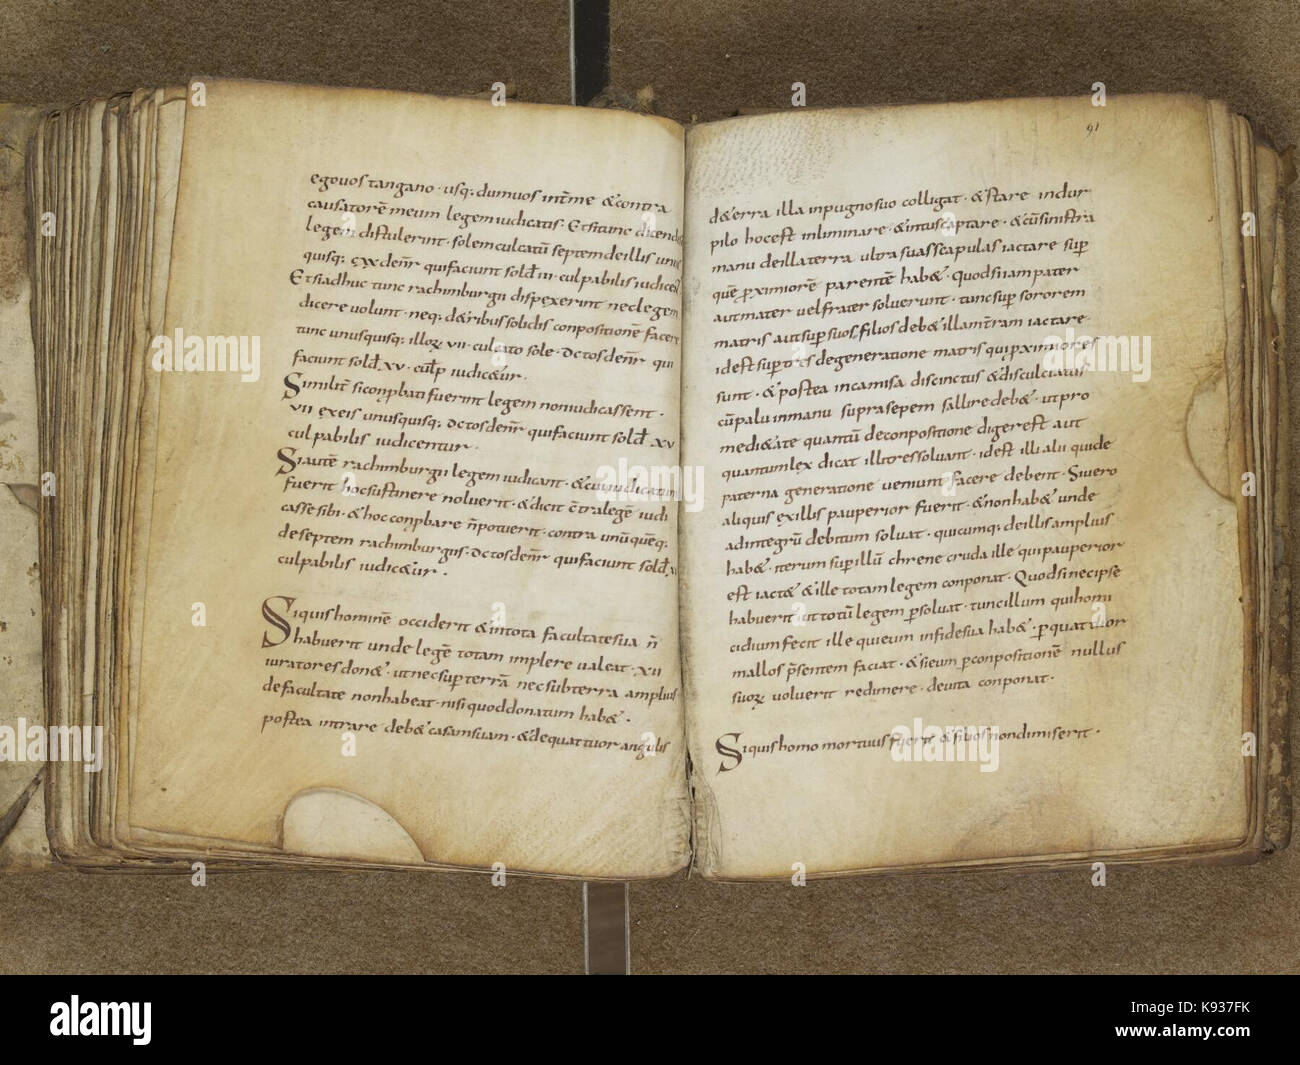 egovos tangano · usq; dum vos int̄ me & contra
causatorē meum legem iudicatis · Et si tunc dicend
legem distulerint · solem culcatū septem de illis unus
quisq; cxx deñr qui faciunt sold̄ iii · culpabilis iudicet
Et si adhuc tunc rachimburgii dispexerint nec legem
dicere volunt · neq; d&ribus solidis conpositionē facere
tunc unusquisq; illoꝝ vii · culcato sole · dctos deñr qui
faciunt sold̄ xv · culp̄ iudic&ur ·
Similit̄ si conꝓbati fuerint legem non iudicassent ·
vii ex eis unusquisq; dctos deñr qui faciunt sold̄ xv
culpabilis iudicentur ·
Si autē rachimburgii legem iudicant · & cui iudicatum
fuerit hoc sustinere noluerit · & dicit c̄tra legē iudi
casse sibi · & hoc conꝓbare ñ potuerit · contra unū queq;
de septem rachimburgiis · dctos deñr qui faciunt sold̄
culpabilis iudic&ur ·
Si quis hominē occiderit & in tota facultate sua ñ
habuerit unde legē totam implere valeat · xii
iuratores don& · ut nec sup̱ terrā nec subterra amplius
de facultate non habeat · nisi quod donatum hab& ·
postea intrare deb& casam suam · & de quattuor angulis
91
d&erra illa in pugno suo colligat · & stare in dur
pilo hoc est in liminare · & intus captare · & cū sinistra
manu de illa terra ultra suas scapulas iactare sup̱
quē ꝓximiorē parentē hab& · Quod si iam pater
aut mater vel frater solverunt · tunc sup̱ sororem
matris aut sup̱ suos filios deb& illam t̄ram iactare ·
id est sup̱ tres de generatione matris qui ꝓximiores
sunt · & postea in camisa discinctus & disculciatus
cū palu in manu supra sepem sallire deb& · ut pro
medi&ate quantū de conpositione digerest aut
quantum lex dicat illi tres solvant · id est illi alii qui de
paterna generatione veniunt facere debent · Si vero
aliquis ex illis pauperior fuerit · & non hab& unde
ad integrū debitum solvat · quicumq; de illis amplius
hab& · iterum sup̱ illū chrene cruda ille qui pauperior
est iact& & ille totam legem conponat · Quod si nec ipse
habuerit ut totū legem p̱solvat · tunc illum qui homi
cidium fecit ille qui eum in fide sua hab& · p̱ quattuor
mallos p̄sentem faciat · & si eum p̱ conpositionē nullus
suoꝝ voluerit redimere · de vita conponat ·
Si quis homo mortuus fuerit & sibos non dimiserit ·
alamy
alamy
alamy
alamy
alamy
Image ID: K937FK
www.alamy.com
alamy stock photo